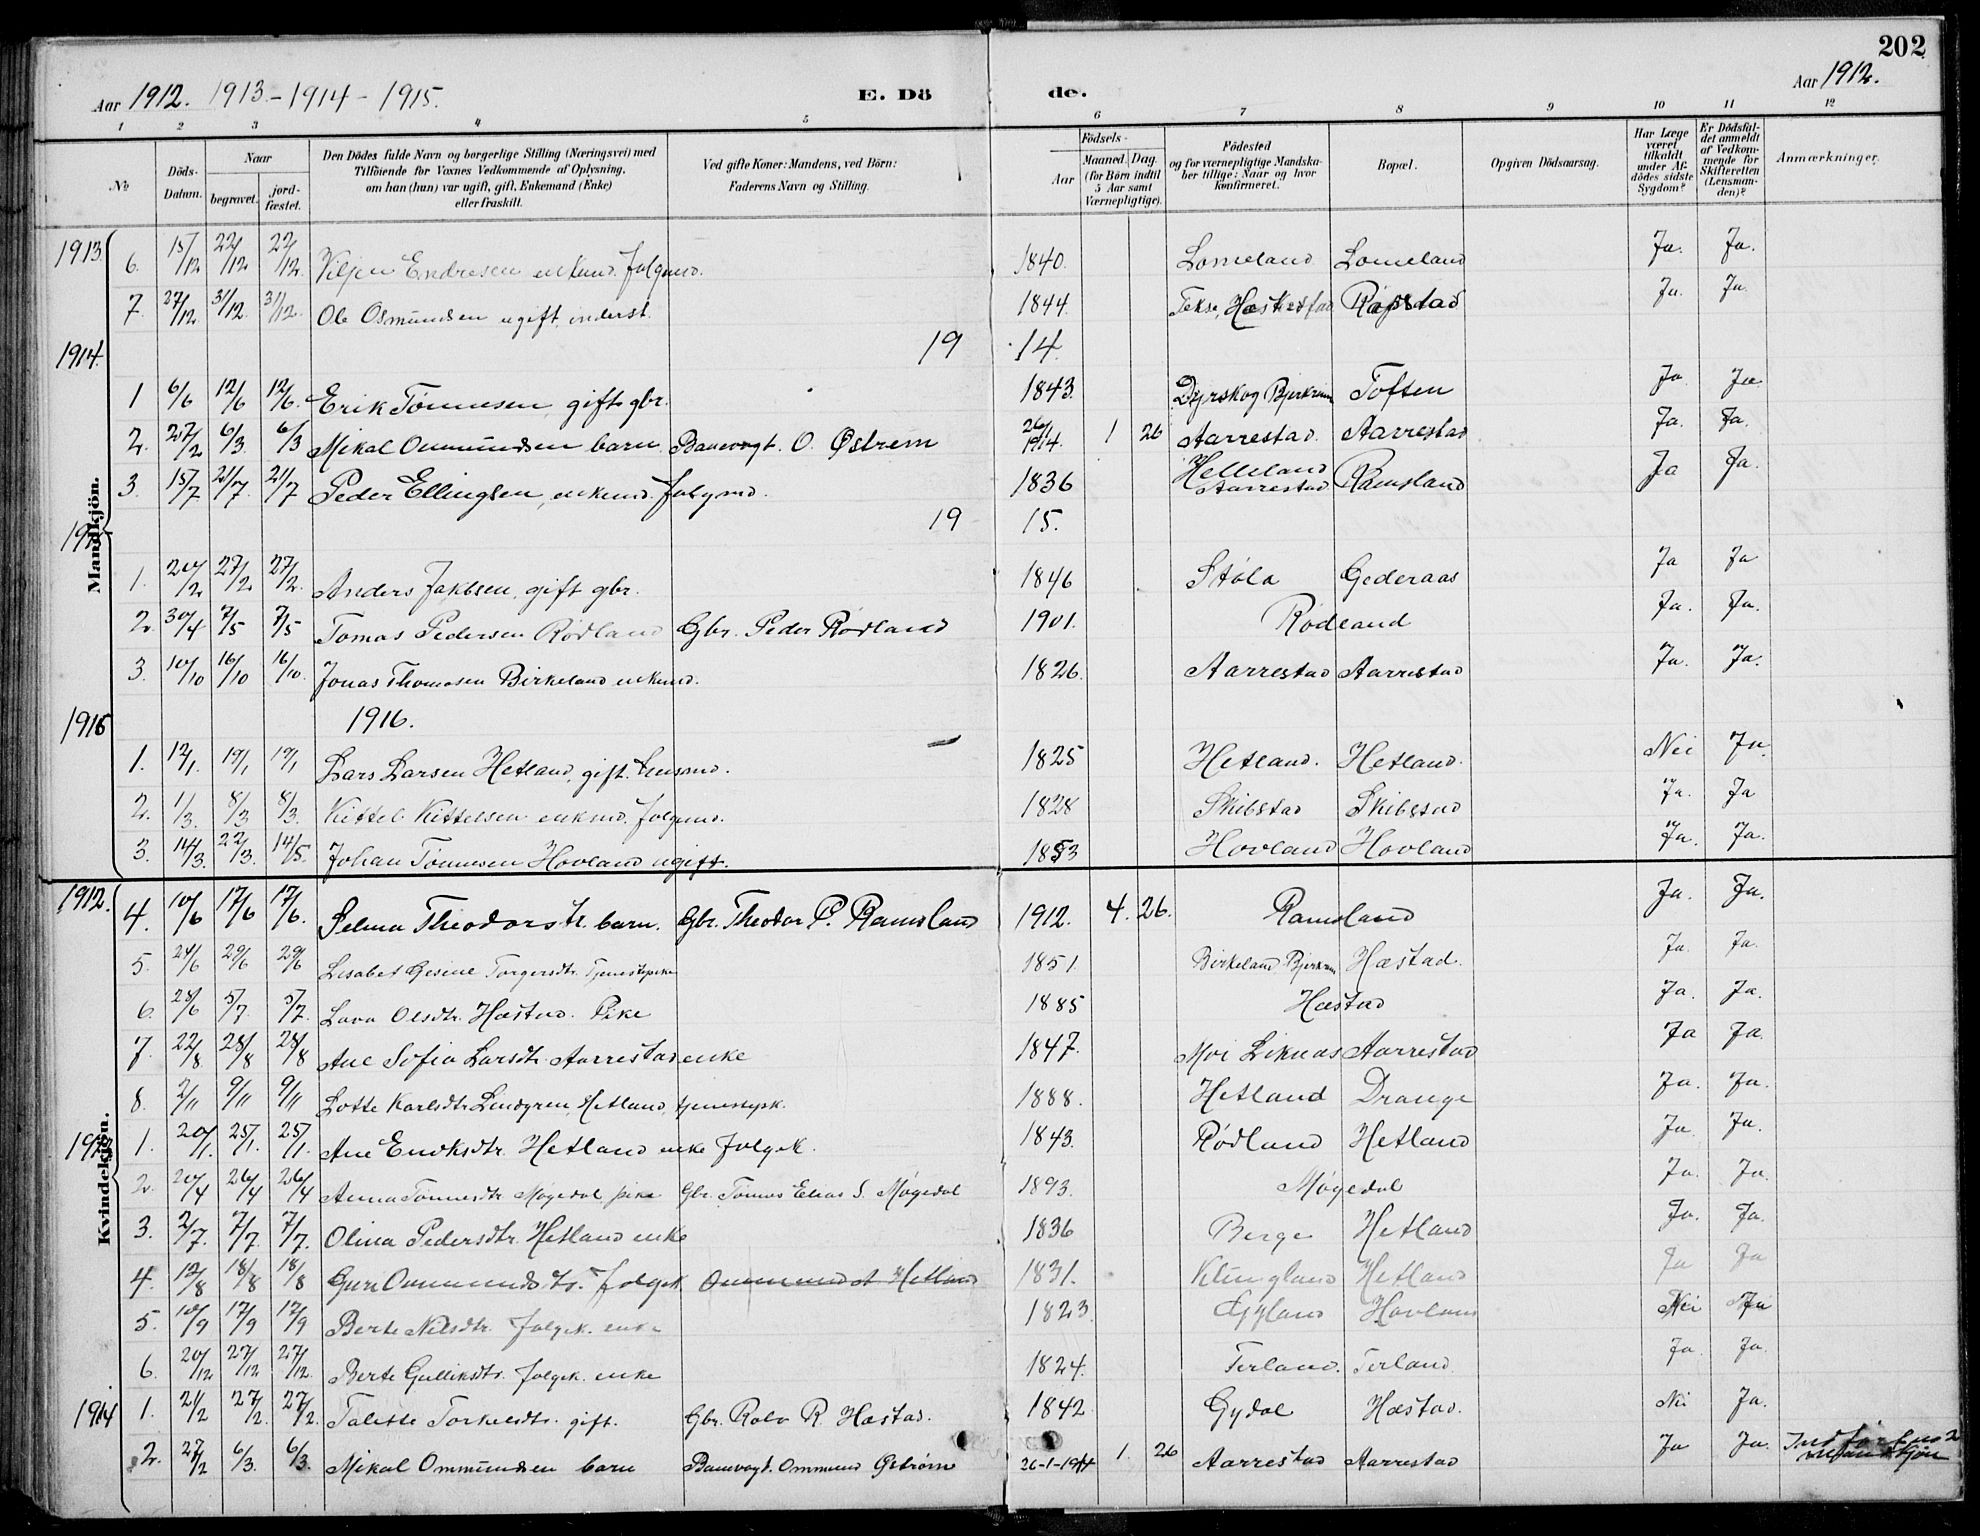 202
Aar 1912. 1913 - 1914 - 1915. E. Dö de. Aar 1912.
1 2 3 4 5 6 7 8 9 10 11 12
No. Döds-Datum. Naar begravet. jord-fæstet. Den Dödes fulde Navn og borgerlige Stilling (Næringsvei) med Tilföiende for Voxnes Vedkommende af Oplysning, om han (hun) var ugift, gift, Enkemand (Enke) eller fraskilt. Ved gifte Koner: Mandens, ved Börn: Faderens Navn og Stilling. Födsels- Aar Maaned. Dag. (for Börn indtil 5 Aar samt Værnepligtige). Födested og for værnepligtige Mandskaber tillige: Naar og hvor konfirmeret. Bopæl. Opgiven Dödsaarsag. Har Læge været tilkaldt under Afdödes sidste Sygdom? Er Dödsfaldet anmeldt af Vedkommende for Skifteretten (Lensmanden)? Anmærkninger.
Mandkjön.
1913 6. 15/12 22/12 22/12. Viljen Endresen enkemd. folgmd. 1840. Lomeland Lomeland Ja. Ja.
7. 27/12 31/12. 31/12. Ole Osmundsen ugift, inderst. 1844. Tekse, Hæskestad Rapstad Ja. Ja.
1914. 19 14.
1 6/6 12/6 12/6. Erik Tönnesen gift gbr. 1843. Dyrskog Bjerkreim Toften Ja Ja
2. 27/2 6/3 6/3 Mikal Ommundsen barn Banevogt. O. Østrem 26/1 1914. 1 26 Aarrestad. Aarrestad Ja. Ja.
3. 15/7 21/7 21/7 Peder Ellingsen, enkemd. folgmd. 1836 Helleland Aarrestad Ramsland Ja Ja.
1915 19 15.
1. 20/2 27/2 27/2. Anders Jakbsen, gift gbr. 1846 Støla Gjederaas Ja Ja
2. 30/4 7/5 7/5 Tomas Pedersen Rødland Gbr. Peder Rødland 1901. Rødland Ja. Ja.
3. 10/10 16/10 16/10. Jonas Thomasen Birkeland enkemd. 1826. Aarrestad Aarrestad Ja. Ja.
1916 1916.
1. 12/1. 19/1 19/1 Lars Larsen Hetland, gift. 1825 Hetland. Hetland. Nei Ja.
2. 1/3. 8/3 8/3. Kittel Kittelsen enkmd. folgmd. 1828 Skibstad Skibstad Ja. Ja
3. 14/3. 22/3. 14/5. Johan Tönnesen Hovland ugift. 1853 Hovland Hovland Ja. Ja.
Kvindekjön.
1912. 4. 10/6 17/6 17/6. Selma Theodorsdtr. barn. Gbr. Theodor P. Ramsland 1912. 4. 26. Ramsland Ja. Ja.
5. 24/6 29/6 29/6 Lisabet Gesine Torgersdtr. Tjenestepike 1851. Birkeland Bjerkreim Hæstad. Ja. Ja.
6. 28/6 5/7. 5/7. Lava Olsdtr. Hæstad. Pike 1885 Hæstad Ja. Ja.
7. 22/8 28/8 28/8 Ane Sofia Larsdtr. Aarrestad enke 1847. Moi Liknas Aarrestad Ja Ja.
8. 2/11 9/11 9/11 Lotte Karlsdtr. Lindgren, Hetland, tjenestepk. 1888. Hetland Drange Ja. Ja.
1913 1. 20/1. 25/1. 25/1. Ane Enoksdtr. Hetland enke folgek. 1843. Rødland Hetland Ja. Ja.
2. 20/4 26/4 26/4 Anna Tönnesdtr Møgedal pike Gbr. Tönnes Elias S. Møgedal 1893. Møgedal Ja. Ja.
3. 2/7. 7/7. 7/7. Olina Pedersdtr. Hetland enke 1836 Berge Hetland Ja. Ja.
4. 12/8 18/8 18/8 Guri Ommundsdtr. folgek Ommund A Hetland 1831. Klungland Hetland Ja Ja
5. 10/9 17/9 17/9 Berte Nilsdtr. folgek. enke 1823. Gyland Hovland Nei Ja
6. 20/12 27/12 27/12. Berte Gulliksdtr. folgek. enke 1824. Terland. Terland. Ja. Ja.
1914 1. 21/2 27/2. 27/2. Talette Torkelsdtr. gift. Gbr. Rolv R. Hæstad. 1842 Gydal Hæstad. Nei Ja.
2. 27/2 6/3. 6/3. Mikal Ommundsen barn Banevogt. Ommund Östrem 26-1-1914 1. 26 Aarrestad Aarrestad Ja Ja. Indført mandkjön